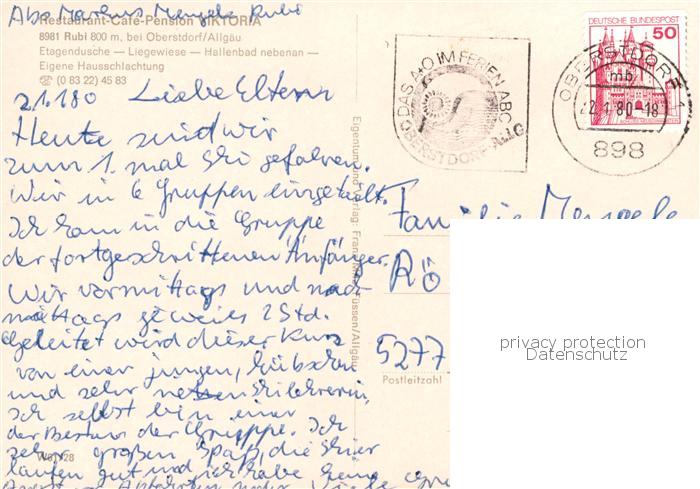 Abs. Markus Mengele Rubi
Restaurant-Café-Pension VIKTORIA
8981 Rubi 800 m, bei Oberstdorf/Allgäu
Etagendusche — Liegewiese — Hallenbad nebenan —
Eigene Hausschlachtung
☎ (0 83 22) 45 83
21.1.80 Liebe Eltern
Heute sind wir
zum 1. mal Ski gefahren.
Wir in 6 Gruppen eingeteilt.
Ich kam in die Gruppe
der fortgeschrittenen Anfänger.
Wir vormittags und nach-
mittags jeweils 2 Std.
Geleitet wird dieser Kurs
von einer jungen, hübschen
und sehr netten Skilehrerin,
Ich selbst bin einer
der Besten der Gruppe. Ich
sehr großen Spaß, die Skier
laufen gut und ich habe keine
Angst vor Abfahrten mehr. Viele
W 128
Eigentum und Verlag: Franz Füssen/Allgäu
DAS A+O IM FERIEN ABC
OBERSTDORF ALLG
DEUTSCHE BUNDESPOST
50
OBERSTDORF 1
mb
22.1.80-18
898
Familie Mengele
Rö
5277
Postleitzahl
privacy protection
Datenschutz